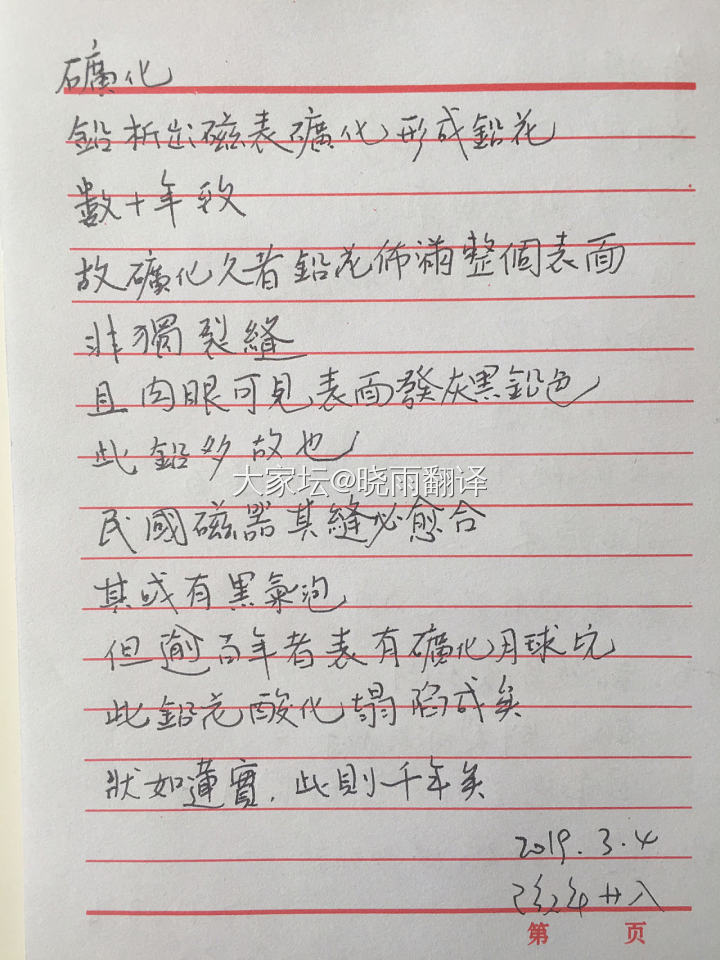 礦化
鉛析出磁表礦化形成鉛花
數十年致
故礦化久者鉛花佈滿整個表面
非獨裂縫
且肉眼可見表面發灰黑鉛色
此鉛多故也
大家坛@晓雨翻译
民國磁器其縫必愈合
其或有黑氣泡
但逾百年者表有礦化月球坑
此鉛花酸化塌陷成矣
狀如蓮實.此則千年矣
2019.3.4
第 页